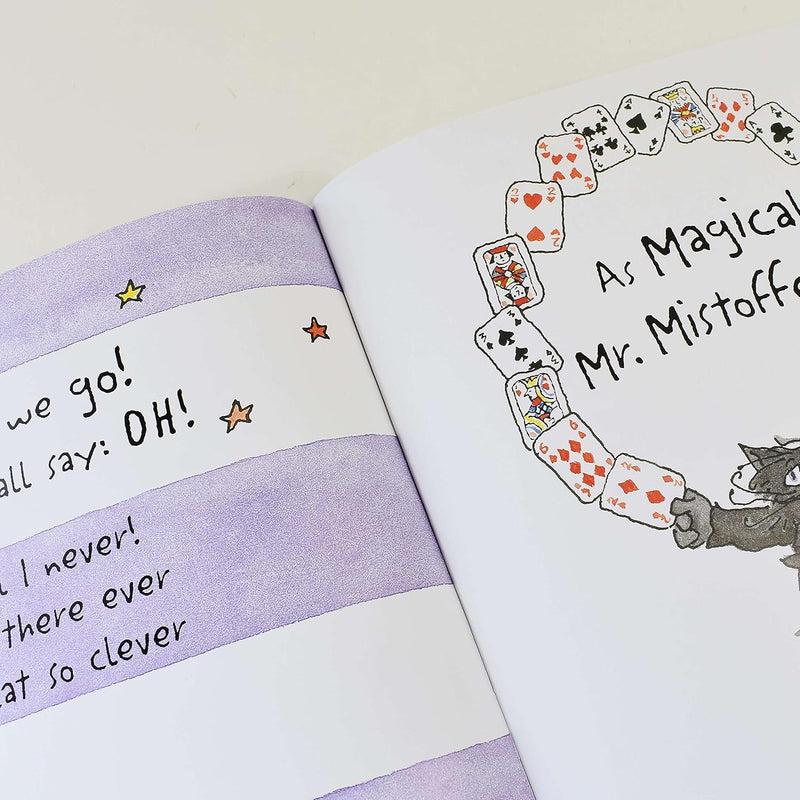 we go!
all say: OH!
I never!
there ever
so clever
As Magical
Mr. Mistoffe